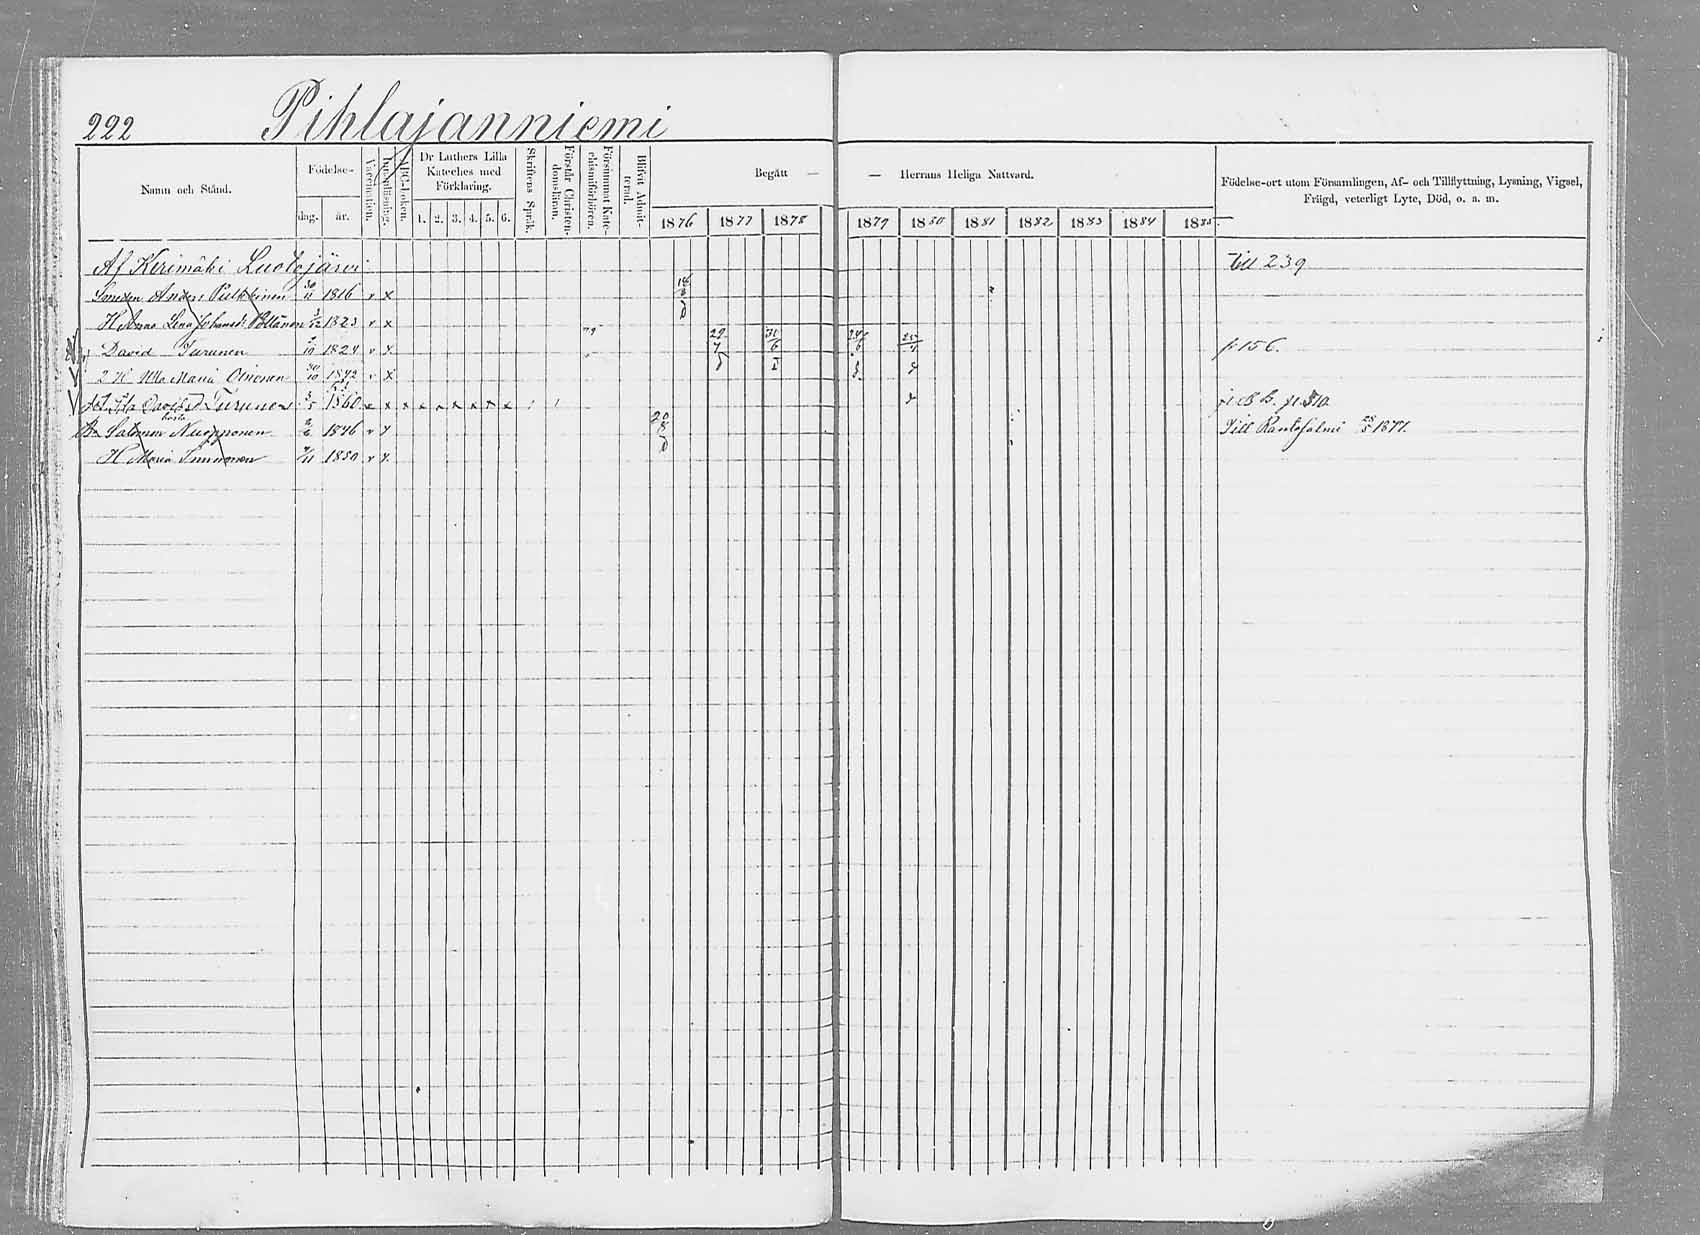 222 Pihlajanniemi
Namn och Stånd.
Födelse-
dag. år.
Vaccination.
Innanläsning.
ABC-boken.
Dr Luthers Lilla Kateches med Förklaring.
1. 2. 3. 4. 5. 6.
Skriftens Språk.
Förstår Christendomsläran.
Försummat Katechismiförhören.
Blifvit Admitterad.
Begått — — Herrans Heliga Nattvard.
1876 1877 1878 1879 1880 1881 1882 1883 1884 1885
Födelse-ort utom Församlingen, Af- och Tillflyttning, Lysning, Vigsel,
Frägd, veterligt Lyte, Död, o. a. m.
Af Kerimäki Luotojärvi till 239
Smeden Anders Pulkkinen 30/11 1816 v x
H Anna Lena Johansd: Pöllänen 3/12 1823 v x
David Turunen 1824 v x 29/7 31/6 p 156.
2 H Ulla Maria Otronen 30/10 1842 v x
Davidsd Turunen 3/5 1860 x x x x x x x x x
Salomon Nuopponen 1846 v x 20/8 Till Rantasalmi 1877.
H Maria Immonen 1850 v x